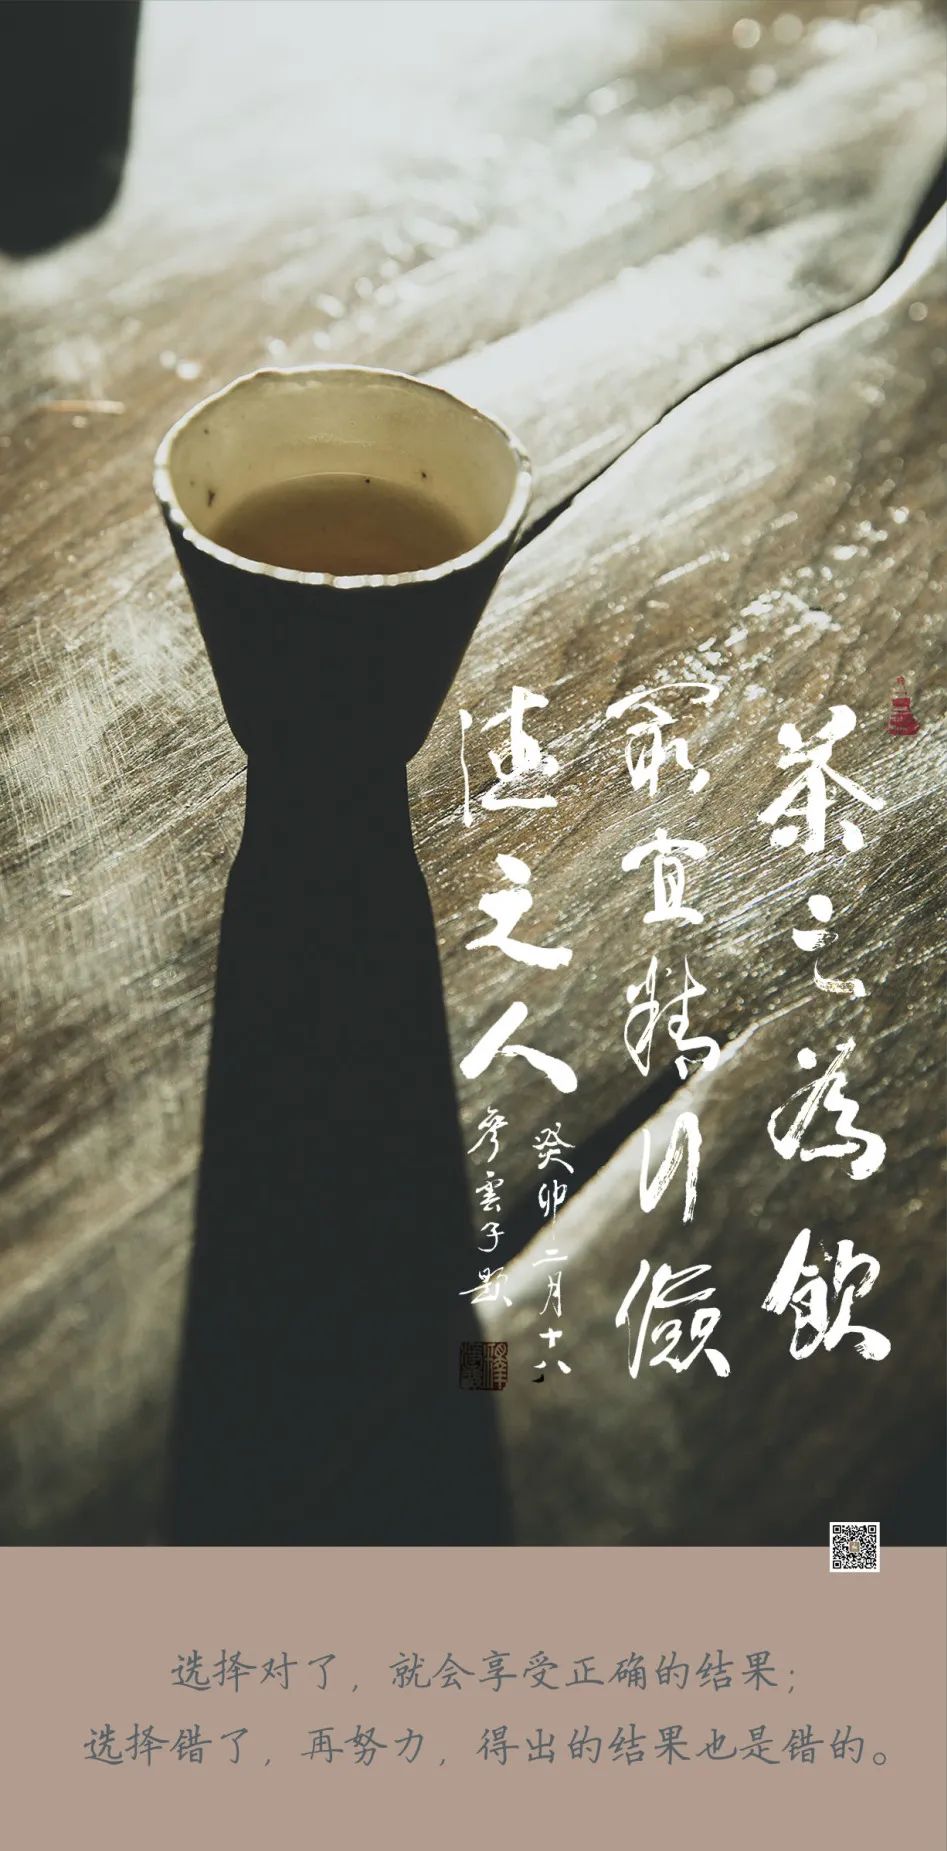 茶之為飲
最宜精行儉
德之人
癸卯二月十八
廖雲子題
选择对了，就会享受正确的结果；
选择错了，再努力，得出的结果也是错的。